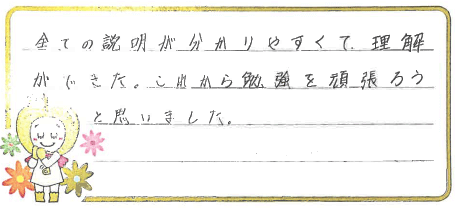 全ての説明が分かりやすくて、理解
ができた。これから勉強を頑張ろう
と思いました。